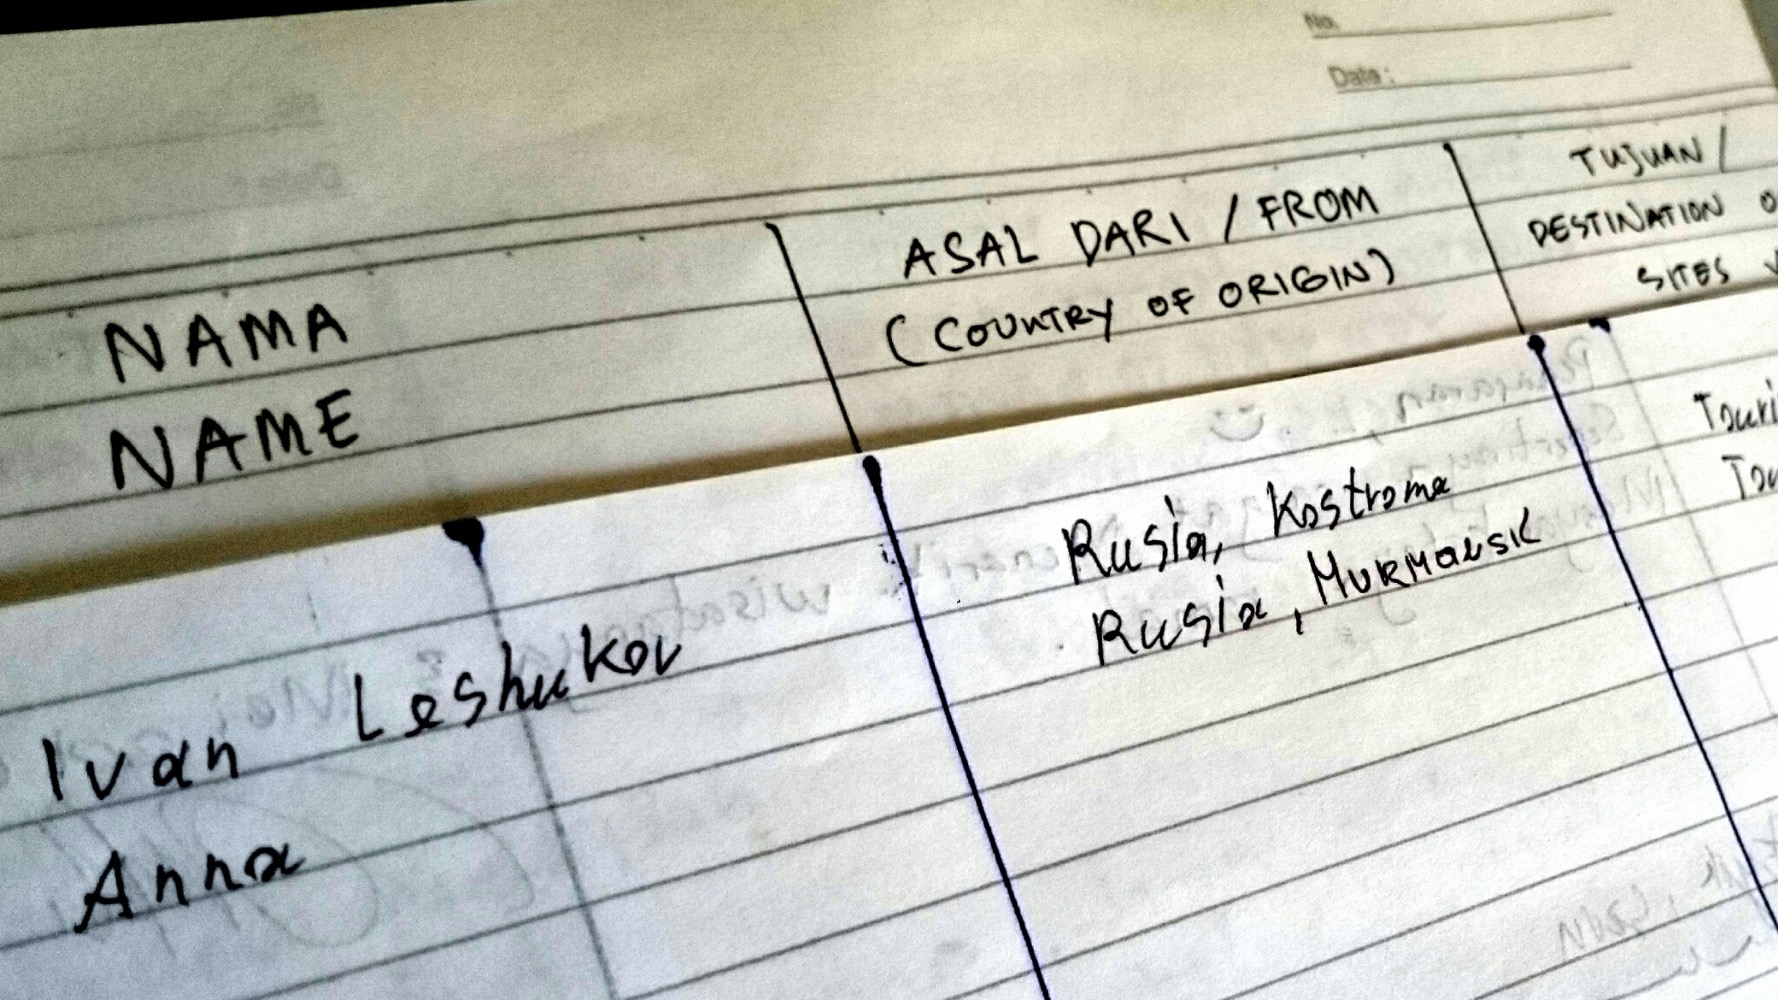 No.
Date:
NAMA
NAME
ASAL DARI / FROM
(COUNTRY OF ORIGIN)
TUJUAN /
DESTINATION
SITES
Ivan Leshukov
Rusia, Kostroma
Anna
Rusia, Murmansk